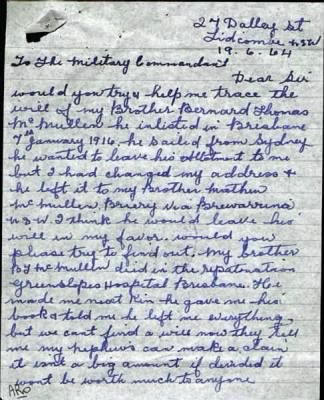 27 Dalley St
Lidcombe NSW
19.6.64
To The Military Commandant
Dear Sir
would you try & help me trace the
will of my Brother Bernard Thomas
McMullen he inlisted in Brisbane
7th January 1916. he sailed from Sydney
he wanted to leave his allotment to me
but I had changed my address &
he left it to my Brother
McMullen Brery via Brewarrina
N.S.W. I think he would leave his
will in my favor. would you
please try to find out. My brother
B T McMullen died in the repatriation
Greenslopes Hospital Brisbane. He
made me next kin he gave me his
book & told me he left me everything
but we cant find a will now they tell
me my nephews can make a claim
it isnt a big amount if divided it
wont be worth much to anyone